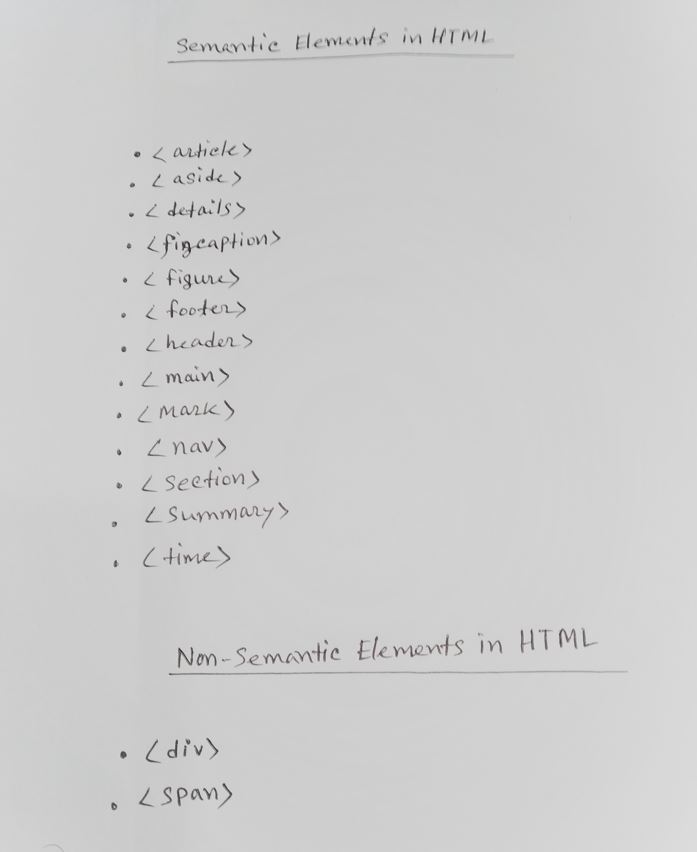 Semantic Elements in HTML
• <article>
• <aside>
• <details>
• <figcaption>
• <figure>
• <footer>
• <header>
• <main>
• <mark>
• <nav>
• <section>
• <summary>
• <time>
Non-Semantic Elements in HTML
• <div>
• <span>